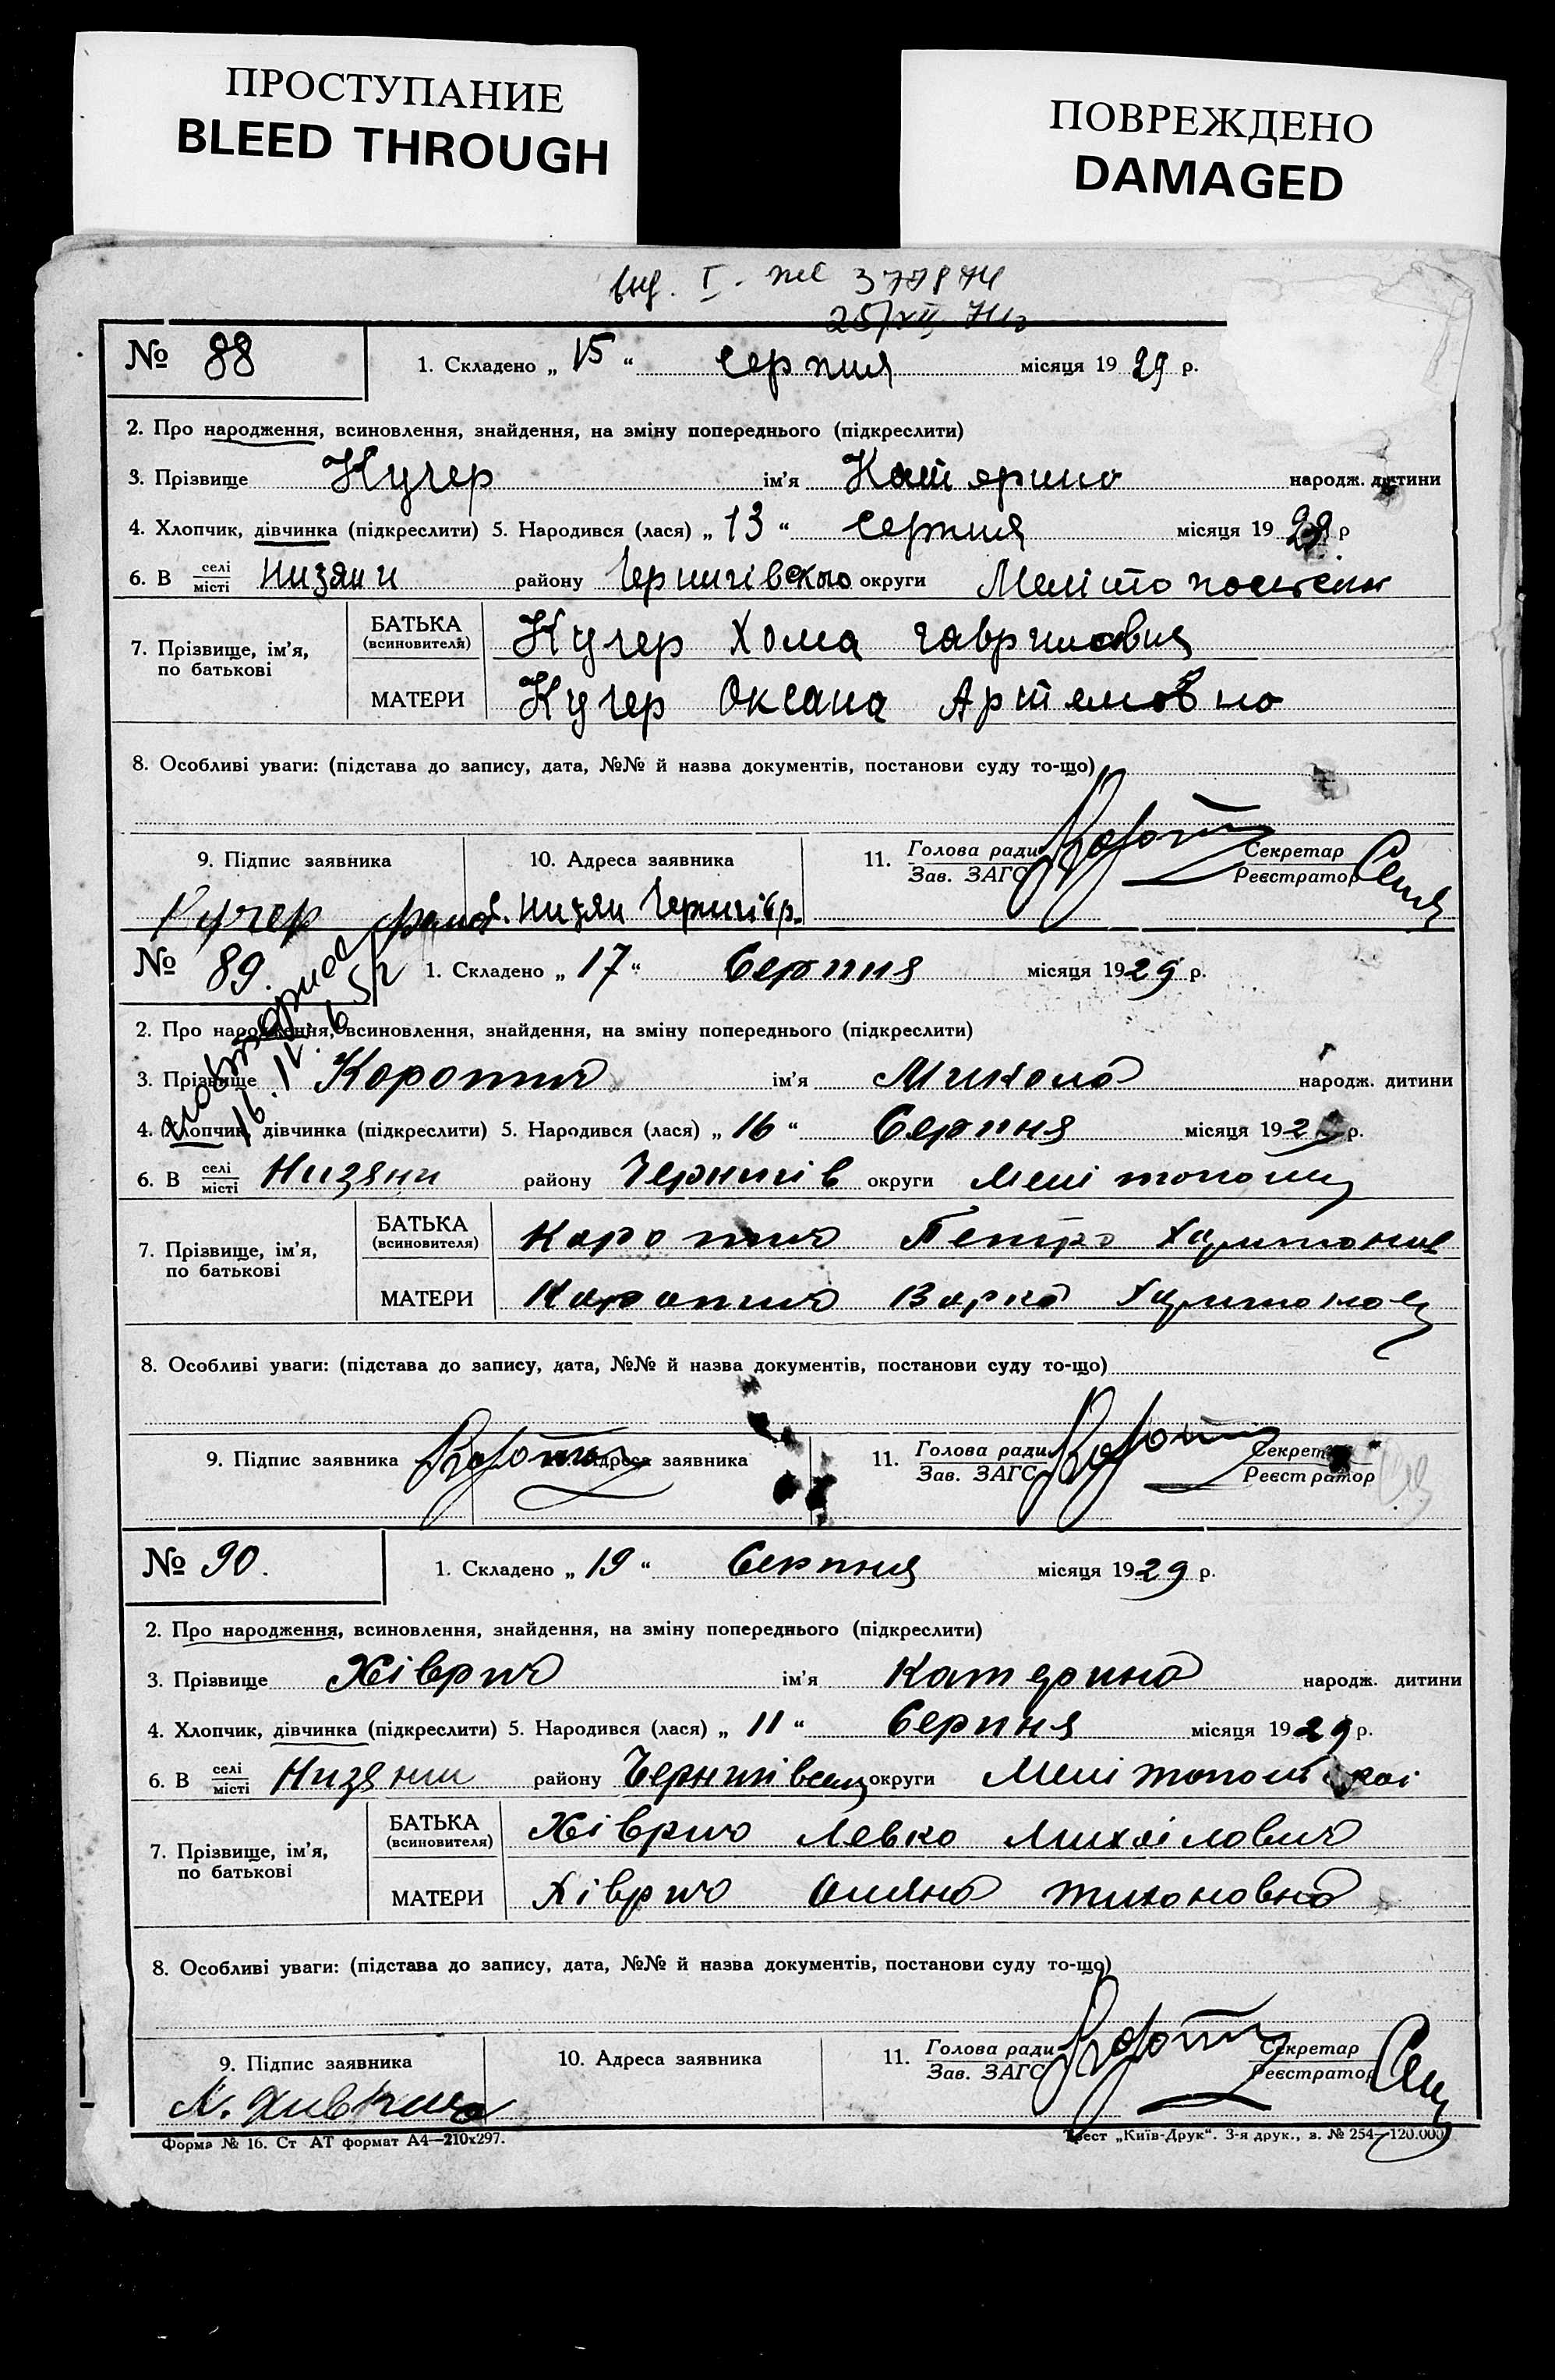 ПРОСТУПАНИЕ
BLEED THROUGH
ПОВРЕЖДЕНО
DAMAGED
I. 377874
25/XII 74
№ 88 1. Складено „ 15 “ серпня місяця 19 29 р.
2. Про народження, всиновлення, знайдення, на зміну попереднього (підкреслити)
3. Прізвище Кучер ім'я Катерина народж. дитини
4. Хлопчик, дівчинка (підкреслити) 5. Народився (лася) „ 13 “ серпня місяця 19 29 р
6. В селі місті Низяни району Чернигівского округи
7. Прізвище, ім'я, по батькові
БАТЬКА (всиновителя) Кучер Хома Гаврилович
МАТЕРИ Кучер Оксана Артемовна
8. Особливі уваги: (підстава до запису, дата, №№ й назва документів, постанови суду то-що)
9. Підпис заявника 10. Адреса заявника 11. Голова ради Зав. ЗАГС Секретар Реєстратор
Кучер с. Низяни Чернигів р.
№ 89. 1. Складено „ 17 “ Серпня місяця 1929 р.
2. Про народження, всиновлення, знайдення, на зміну попереднього (підкреслити)
3. Прізвище Коротич ім'я Микола народж. дитини
4. Хлопчик, дівчинка (підкреслити) 5. Народився (лася) „ 16 “ Серпня місяця 192 р.
6. В селі місті Низяни району Чернигів округи
7. Прізвище, ім'я, по батькові
БАТЬКА (всиновителя) Коротич Петро Харитонов
МАТЕРИ Коротич Варка
8. Особливі уваги: (підстава до запису, дата, №№ й назва документів, постанови суду то-що)
9. Підпис заявника Адреса заявника 11. Голова ради Зав. ЗАГС Секретар Реєстратор
№ 90. 1. Складено „ 19 “ Серпня місяця 1929 р.
2. Про народження, всиновлення, знайдення, на зміну попереднього (підкреслити)
3. Прізвище Хіврич ім'я Катерина народж. дитини
4. Хлопчик, дівчинка (підкреслити) 5. Народився (лася) „ 11 “ Серпня місяця 1929 р.
6. В селі місті Низяни району округи Мелітопольскої
7. Прізвище, ім'я, по батькові
БАТЬКА (всиновителя) Хіврич Левко Михайлович
МАТЕРИ Хіврич Тихоновна
8. Особливі уваги: (підстава до запису, дата, №№ й назва документів, постанови суду то-що)
9. Підпис заявника 10. Адреса заявника 11. Голова ради Зав. ЗАГС Секретар Реєстратор
Форма № 16. Ст АТ формат А4—210х297. Трест „Київ-Друк“. 3-я друк., з. № 254—120.000